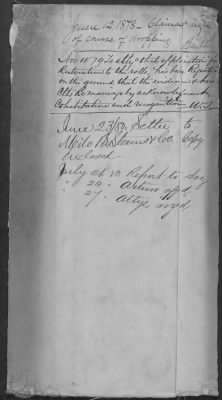 June 12 1878 - Claimant info
of cause of dropping
Nov 10 79 To atty that application for
Restoration to the rolls, has been Rejected
on the ground that the evidence shows
the marriage by acknowledgment
Cohabitation and recognition
June 23/80 Letter to
Milo B. Stevens & Co. Copy
inclosed.
July 21 80 Report to Sec
" 24 - Action
" 27 - Attys